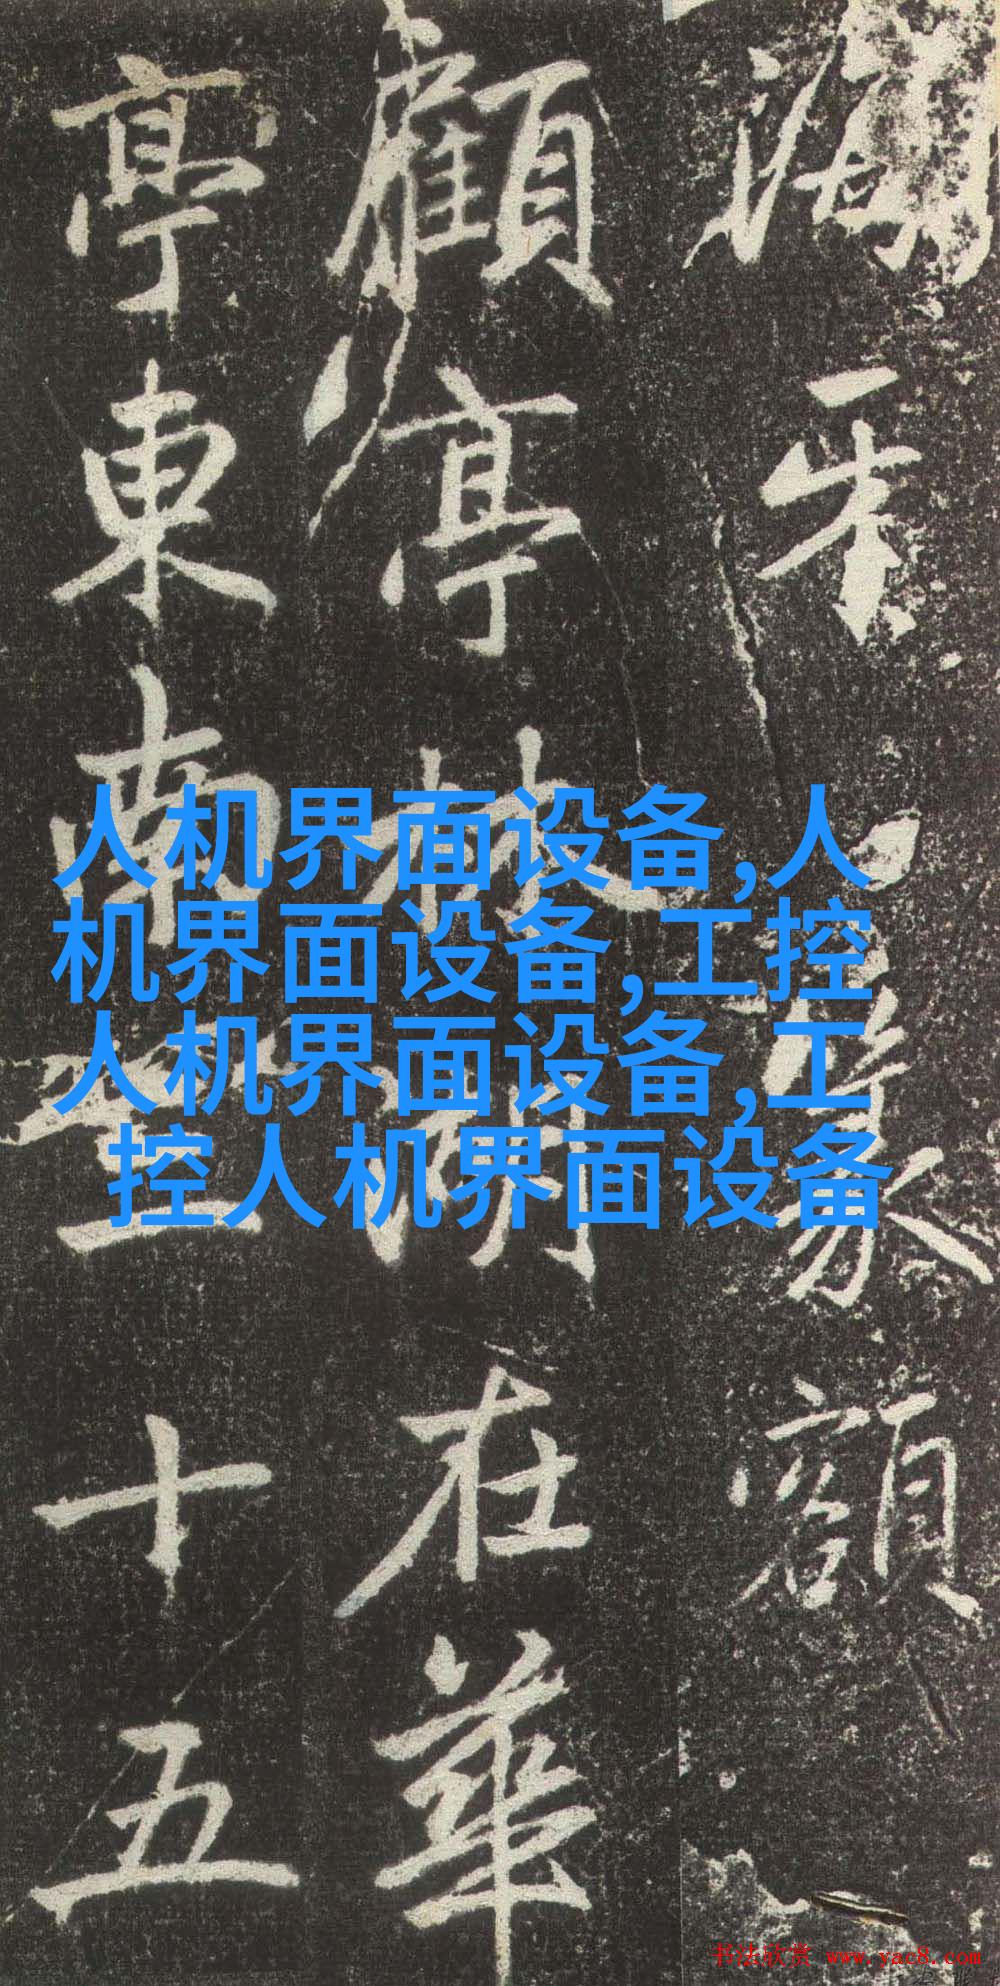 篆額
顧亭林湖在華
亭東南三十五
人机界面设备,人
机界面设备,工控
人机界面设备,工
控人机界面设备
书法欣赏 www.yac8.com